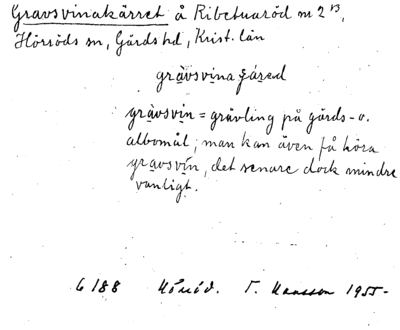 Gravsvinakärret å Ribetuaröd nr 2¹³,
Hörröds sn, Gärds hd, Krist. län
gràvsvina
gràvsvin = grävling på gärds- o.
albomål; man kan även få höra
gravsvín, det senare dock mindre
vanligt.
6188 Hörröd. Hansson 1955-